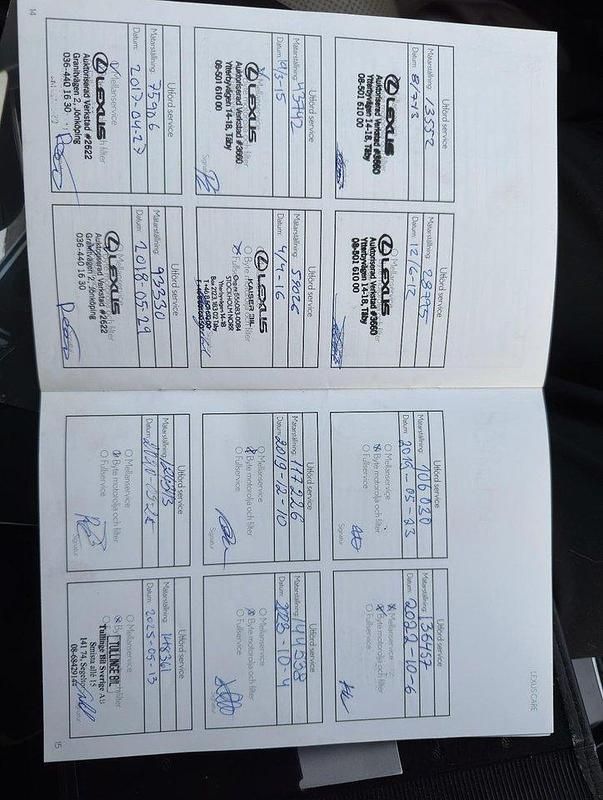 Utförd service
Mätarställning: 13352
Datum:
LEXUS
Auktoriserad Verkstad #3660
Ytterbyvägen 14-18, Täby
08-501 610 00
Utförd service
Mätarställning: 28995
Datum: 12/6-12
Mellanservice
LEXUS
Auktoriserad Verkstad #3660
Ytterbyvägen 14-18, Täby
08-501 610 00
Utförd service
Mätarställning: 45792
Datum:
LEXUS
Auktoriserad Verkstad #3660
Ytterbyvägen 14-18, Täby
08-501 610 00
Utförd service
Mätarställning:
Datum: 4/4-16
LEXUS
KAISER BIL
STOCKHOLM NORR
Ytterbyvägen 14-18
Utförd service
Mätarställning: 75906
Datum: 2017-04-27
Mellanservice
LEXUS
Auktoriserad Verkstad #2622
Granitvägen 2, Jönköping
036-440 16 30
Utförd service
Mätarställning: 93330
Datum: 2018-05-29
LEXUS
Auktoriserad Verkstad #2622
Granitvägen 2, Jönköping
036-440 16 30
14
LEXUS CARE
Utförd service
Mätarställning: 106030
Datum: 2019-05-23
Mellanservice
Byte motorolja och filter
Fullservice
Signatur
Utförd service
Mätarställning: 136457
Datum: 2022-10-6
Mellanservice
Byte motorolja och filter
Fullservice
Utförd service
Mätarställning: 117226
Datum: 2019-12-10
Mellanservice
Byte motorolja och filter
Fullservice
Signatur
Utförd service
Mätarställning: 144538
Datum: 2023-10-4
Mellanservice
Byte motorolja och filter
Fullservice
Signatur
Utförd service
Mätarställning:
Datum:
Mellanservice
Byte motorolja och filter
Fullservice
Signatur
Utförd service
Mätarställning:
Datum: 2025-05-13
Mellanservice
TULLINGE BIL
Tullinge Bil Sverige AB
Smista allé 15
08-68429144
15